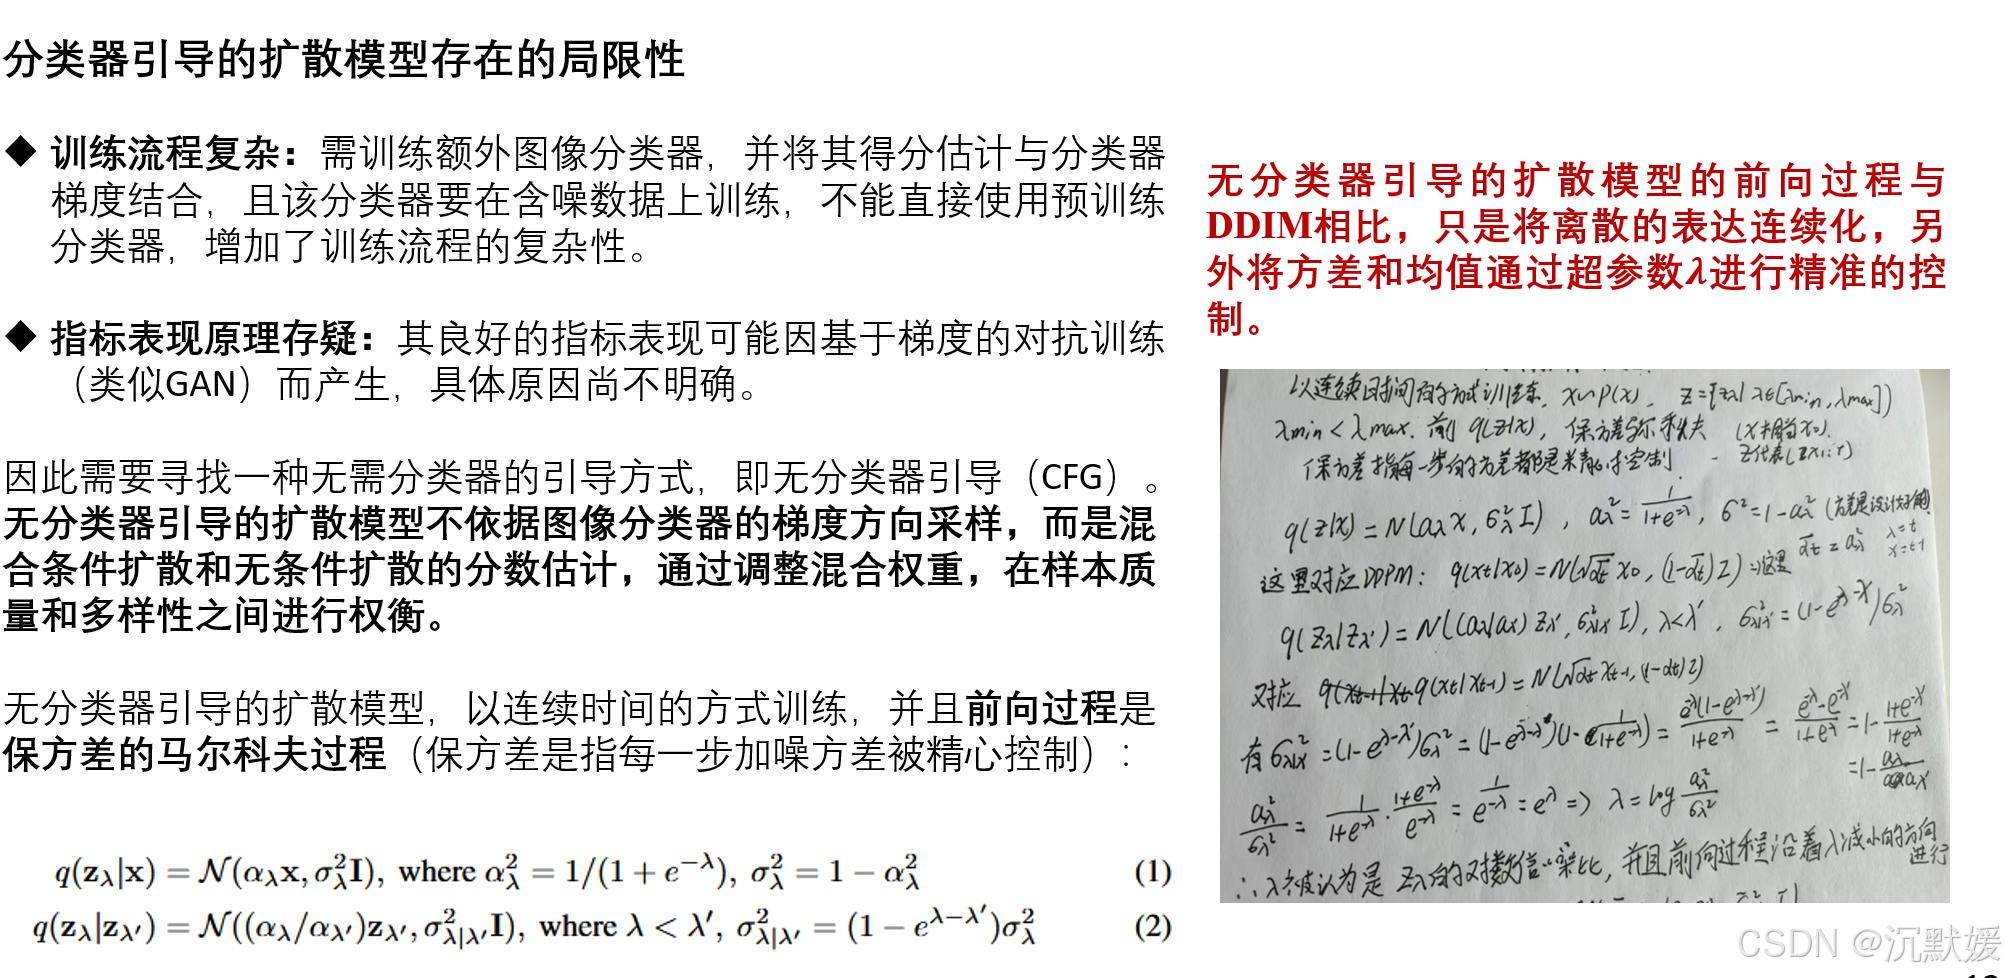 分类器引导的扩散模型存在的局限性
◆ 训练流程复杂：需训练额外图像分类器，并将其得分估计与分类器
梯度结合，且该分类器要在含噪数据上训练，不能直接使用预训练
分类器，增加了训练流程的复杂性。
◆ 指标表现原理存疑：其良好的指标表现可能因基于梯度的对抗训练
（类似GAN）而产生，具体原因尚不明确。
因此需要寻找一种无需分类器的引导方式，即无分类器引导（CFG）。
无分类器引导的扩散模型不依据图像分类器的梯度方向采样，而是混
合条件扩散和无条件扩散的分数估计，通过调整混合权重，在样本质
量和多样性之间进行权衡。
无分类器引导的扩散模型，以连续时间的方式训练，并且前向过程是
保方差的马尔科夫过程（保方差是指每一步加噪方差被精心控制）：
q(z_λ|x) = N(α_λx, σ²_λI), where α²_λ = 1/(1 + e^{−λ}), σ²_λ = 1 − α²_λ (1)
q(z_λ|z_λ′) = N((α_λ/α_λ′)z_λ′, σ²_{λ|λ′}I), where λ < λ′, σ²_{λ|λ′} = (1 − e^{λ−λ′})σ²_λ (2)
无分类器引导的扩散模型的前向过程与
DDIM相比，只是将离散的表达连续化，另
外将方差和均值通过超参数λ进行精准的控
制。
以连续时间的方式训练. x~P(x), z={z_λ| λ∈[λmin, λmax]}
λmin < λmax. 前 q(z|x), 保方差马尔科夫 (x相当x₀).
保方差指每一步的方差都是精心控制
q(z|x) = N(α_λ x, σ²_λ I), α²_λ = 1/(1+e^{-λ}), σ² = 1-α²_λ
这里对应DDPM: q(xt|x0) = N(√ᾱt x0, (1-ᾱt)I) 这里 ᾱt = α²_λ
q(z_λ|z_λ′) = N((α_λ/α_λ′) z_λ′, σ²_{λ|λ′} I), λ<λ′, σ²_{λ|λ′} = (1-e^{λ-λ′})σ²_λ
对应 q(xt|xt-1) = N(√αt xt-1, (1-αt)I)
有 σ²_{λ|λ′} = (1-e^{λ-λ′})σ²_λ
α²_λ/σ²_λ = 1/(1+e^{-λ}) · (1+e^{-λ})/e^{-λ} = 1/e^{-λ} = e^λ => λ = log α²_λ/σ²_λ
∴ λ被认为是 z_λ的对数信噪比, 并且前向过程沿着λ减小的方向
进行
CSDN @沉默媛